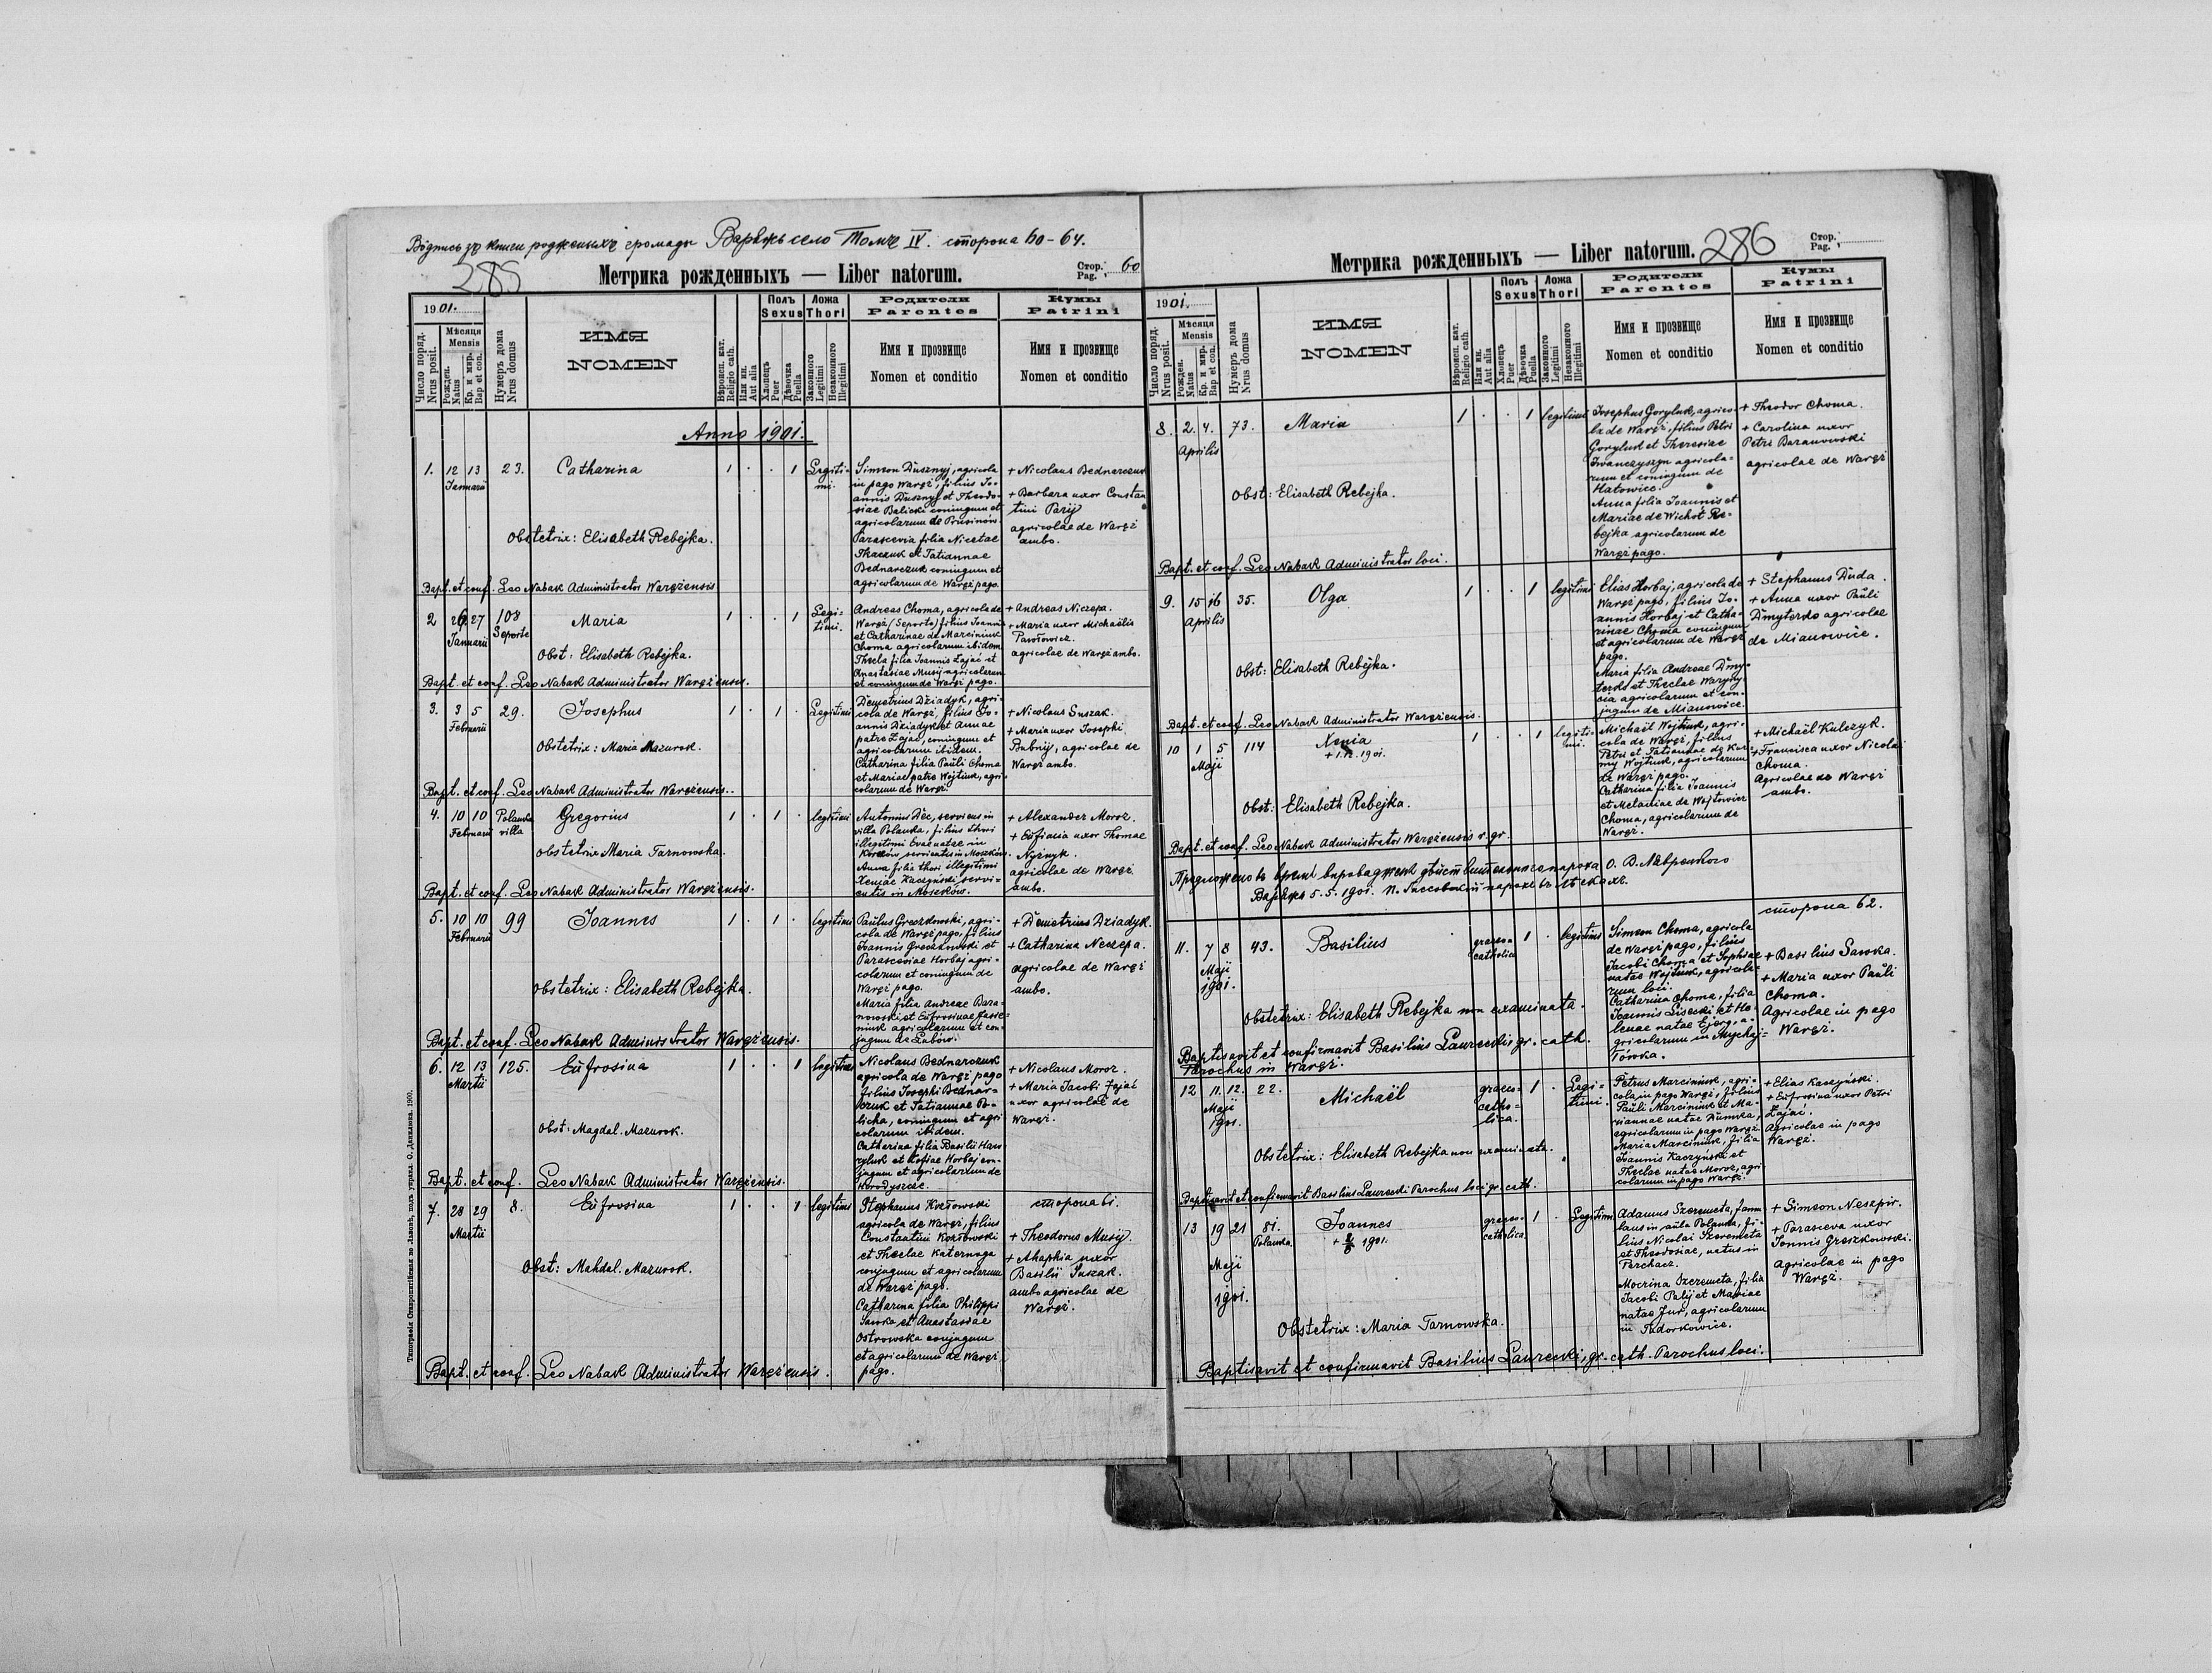 Вôдпись зъ книги рожденыхъ громады Варяжъ село Томъ IV. сторона 60-64.
285
Метрика рожденныхъ — Liber natorum.
Стор. Pag. 60
1901.
Число поряд. Nrus posit.
Мѣсяця Mensis
Рожден. Natus
Кр. и мѵр. Bap et con.
Нумеръ дома Nrus domus
ИМЯ
NOMEN
Вѣроисп. кат. Religio cath.
Или ин. Aut alia
Полъ Sexus
Хлопецъ Puer
Дѣвочка Puella
Ложа Thori
Законного Legitimi
Незаконного Illegitimi
Родители
Parentes
Имя и прозвище
Nomen et conditio
Кумы
Patrini
Имя и прозвище
Nomen et conditio
Anno 1901.
1. 12 13 Januarii 23. Catharina 1 . . 1 Legiti-
mi.
Simeon Dusznyj, agricola
in pago Waręż, filius Jo-
annis Dusznyj et Theodo-
siae Balicki coniugum et
agricolarum de Prusinów.
Parascevia filia Nicetae
Tkaczuk et Tatiannae
Bednarczuk coniugum et
agricolarum de Waręż pago.
+ Nicolaus Bednarczuk
+ Barbara uxor Constan
tini Pary
agricolae de Waręż
ambo.
Obstetrix: Elisabeth Rebejka.
Bapt. et conf. Leo Nabak Administrator Waręzensis
2 26 27 Januarii 108 Seporte Maria 1 . . 1 Legi-
timi.
Andreas Choma, agricola de
Waręż (Seporte) filius Joannis
et Catharinae de Marciniuk
Choma agricolarum ibidem.
Thecla filia Joannis Zając et
Anastasiae Musij agricolarum
et coniugum de Waręż pago.
+ Andreas Niczepa.
+ Maria uxor Michaëlis
Pawłowicz.
agricolae de Waręż ambo.
Obst: Elisabeth Rebejka.
Bapt. et conf. Leo Nabak Administrator Waręzensis.
3. 3 5 Februarii 29. Josephus 1 . 1 . Legitimi
Demetrius Dziadyk, agri-
cola de Waręż, filius Jo-
annis Dziadyk et Annae
patre Zając, coniugum et
agricolarum ibidem.
Catharina filia Pauli Choma
et Mariae patre Wojtiuk, agri-
colarum de Waręż
+ Nicolaus Suszak.
+ Maria uxor Josephi
Bubnij, agricolae de
Waręż ambo.
Obstetrix: Maria Mazurok.
Bapt. et conf. Leo Nabak Administrator Waręzensis.
4. 10 10 Februarii Polanka villa Gregorius 1 . 1 . legitimi
Antonius Dec, serviens in
villa Polanka, filius thori
illegitimi Evae natae in
Korczów, servientis in Moszków.
Anna filia thori illegitimi
Xeniae Kaczyński servi-
entis in Moszków.
+ Alexander Moroz.
+ Eufimia uxor Thomae
Nyżnyk.
agricolae de Waręż
ambo.
Obstetrix Maria Tarnowska.
Bapt. et conf. Leo Nabak Administrator Waręzensis.
5. 10 10 Februarii 99 Joannes 1 . 1 . legitimi
Paulus Greczkowski, agri-
cola de Waręż pago, filius
Joannis Greczkowski et
Parasceviae Horbaj agri-
colarum et coniugum de
Waręż pago.
Maria filia Andreae Bara-
nowski et Eufrosinae Jasie-
niuk agricolarum et con-
jugum de Żabcze.
+ Demetrius Dziadyk.
+ Catharina Neczepa.
agricolae de Waręż
ambo.
Obstetrix: Elisabeth Rebejka.
Bapt. et conf. Leo Nabak Administrator Waręzensis.
6. 12 13 Martii 125. Eufrosina 1 . . 1 legitimi
Nicolaus Bednarczuk
agricola de Waręż pago
filius Josephi Bednar-
czuk et Tatiannae Ba-
licka, coniugum et agri
colarum ibidem.
Catharina filia Basilii Haw
ryluk et Sofiae Horbaj con-
jugum et agricolarum de
Horodyszcze.
+ Nicolaus Moroz.
+ Maria Jacobi Zając
uxor agricolae de
Waręż.
Obst: Magdal. Mazurok.
Bapt. et conf. Leo Nabak Administrator Waręzensis.
7. 28 29 Martii 8. Eufrosina 1 . . 1 legitimi
Stephanus Kozłowski
agricola de Waręż, filius
Constantini Kozłowski
et Theclae Katernoga
conjugum et agricolarum
de Waręż pago.
Catharina filia Philippi
Sawka et Anastasiae
Ostrowska conjugum
et agricolarum de Waręż
pago.
сторона 61.
+ Theodorus Musij.
+ Ahaphia uxor
Basilii Suszak.
ambo agricolae de
Waręż.
Obst: Mahdal. Mazurok.
Bapt. et conf. Leo Nabak Administrator Waręzensis.
Типографія Ставропигійская во Львовѣ, подъ управл. О. Данилюка. 1900.
286
Метрика рожденныхъ — Liber natorum.
Стор. Pag.
1901.
Число поряд. Nrus posit.
Мѣсяця Mensis
Рожден. Natus
Кр. и мѵр. Bap et con.
Нумеръ дома Nrus domus
ИМЯ
NOMEN
Вѣроисп. кат. Religio cath.
Или ин. Aut alia
Полъ Sexus
Хлопецъ Puer
Дѣвочка Puella
Ложа Thori
Законного Legitimi
Незаконного Illegitimi
Родители
Parentes
Имя и прозвище
Nomen et conditio
Кумы
Patrini
Имя и прозвище
Nomen et conditio
8. 2. 4. Aprilis 73. Maria 1 . . 1 legitimi
Josephus Goryluk, agrico-
la de Waręż, filius Petri
Goryluk et Theresiae
Iwanczyszyn agricola-
rum et coniugum de
Hatowice.
Anna filia Joannis et
Mariae de Wichot Re-
bejka agricolarum de
Waręż pago.
+ Theodor Choma.
+ Carolina uxor
Petri Baranowski
agricolae de Waręż
Obst: Elisabeth Rebejka.
Bapt. et conf. Leo Nabak Administrator loci.
9. 15 16 Aprilis 35. Olga 1 . . 1 legitimi
Elias Horbaj, agricola de
Waręż pago, filius Jo-
annis Horbaj et Catha-
rinae Choma coniugum
et agricolarum de Waręż
pago.
Maria filia Andreae Dmy-
terko et Theclae
agricolarum et con-
jugum de Mianowice.
+ Stephanus Duda.
+ Anna uxor Pauli
Dmyterko agricolae
de Mianowice.
Obst: Elisabeth Rebejka.
Bapt. et conf. Leo Nabak Administrator Waręzensis.
10 1 5 Maji 114 Xenia 1 . . 1 legiti-
mi.
1901.
Michaël Wojtiuk, agri-
cola de Waręż, filius
Petri et Tatiannae de Kuz-
my Wojtiuk, agricolarum
de Waręż pago.
Catharina filia Joannis
et Melaniae de Wojtowicz
Choma, agricolarum de
Waręż.
+ Michaël Kulczyk.
+ Francisca uxor Nicolai
Choma.
Agricolae de Waręż
ambo.
Obst: Elisabeth Rebejka.
Bapt. et conf. Leo Nabak Administrator Waręzensis r. gr.
Предложено въ время пароха О. В. Лаврецкого
Варяжъ 5.5.1901.
сторона 62.
11. 7 8 Maji 1901. 43. Basilius graeco-
catholica 1 . legitimi
Simeon Choma, agricola
de Waręż pago, filius
Jacobi Choma et Sophiae
natae Wojtiuk, agricola-
rum loci.
Catharina Choma, filia
Joannis Lisecki et He-
lenae natae, a-
gricolarum in Mychaj-
łówka.
+ Basilius Sawka.
+ Maria uxor Pauli
Choma.
Agricolae in pago
Waręż.
Obstetrix: Elisabeth Rebejka non examinata.
Baptisavit et confirmavit Basilius Laurecki gr. cath.
Parochus in Waręż.
12 11. 12. Maji 1901. 22. Michaël graeco-
catho-
lica. 1 . Legi-
timi.
Petrus Marciniuk, agri-
cola in pago Waręż, filius
Pauli Marciniuk et Ma-
riannae natae Dumska,
agricolarum in pago Waręż
Maria Marciniuk, filia
Joannis Kaczyński et
Theclae natae Moroz, agri
colarum in pago Waręż.
+ Elias Kaczyński.
+ Eufrosina uxor Petri
Zając.
Agricolae in pago
Waręż.
Obstetrix: Elisabeth Rebejka non examinata.
Baptisavit et confirmavit Basilius Laurecki Parochus loci gr. cath.
13 19 21 Maji 1901. 81. Polanka. Joannes graeco-
catholica 1 . Legitimi
1901.
Adamus Szeremeta, famu
lans in aula Polanka, fi-
lius Nicolai Szeremeta
et Theodosiae, natus in
Parchacz.
Mocrina Szeremeta, filia
Jacobi Palij et Mariae
natae Jur, agricolarum
in Tudorkowice.
+ Simeon Neszpir.
+ Parasceva uxor
Joannis Greszkowski.
agricolae in pago
Waręż.
Obstetrix: Maria Tarnowska.
Baptisavit et confirmavit Basilius Laurecki, gr. cath. Parochus loci.